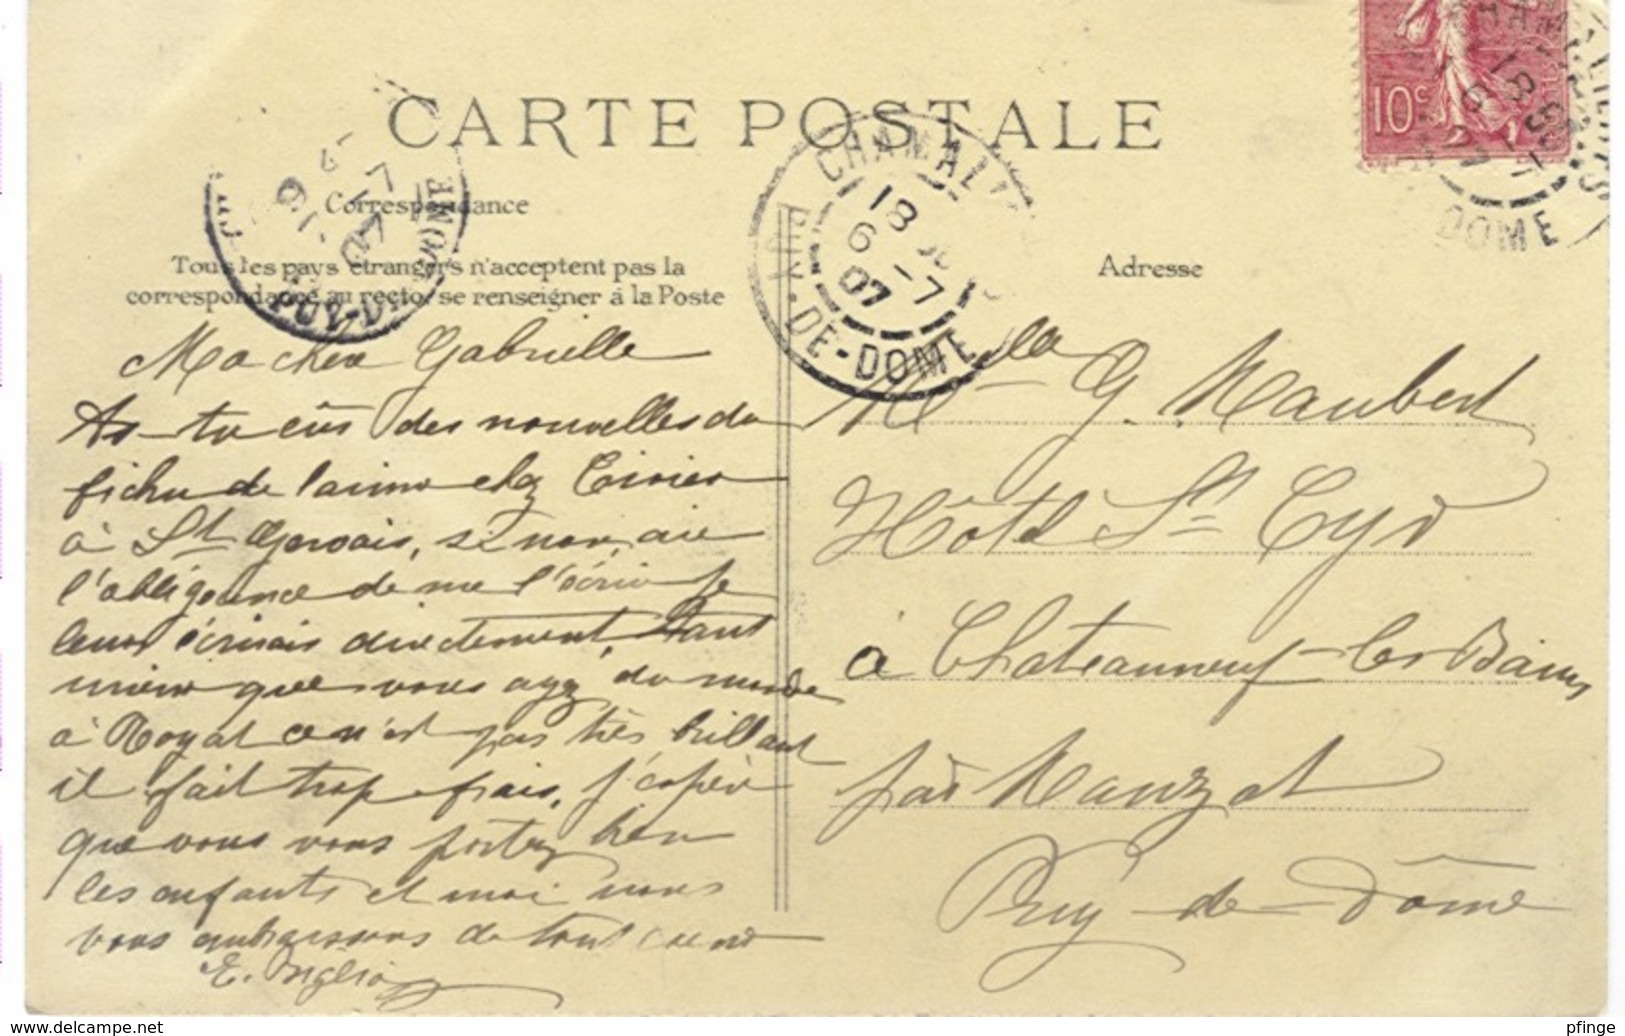 CARTE POSTALE
10c
CHAMAL
18
6 -7
07
PUY-DE-DOME
DOME
Correspondance
Tous les pays étrangers n'acceptent pas la
correspondance au recto, se renseigner à la Poste
Adresse
Ma chère Gabrielle
As-tu eûs des nouvelles du
fichu de laine chez
à St Gervais, si non, aie
l'obligeance de me l'écrire je
leur écrirais directement,
que vous ayez du monde
à Royat ce n'est pas très brillant
il fait trop frais, j'espère
que vous vous portez bien
les enfants et moi nous
vous embrassons de tout cœur
E.
Melle G. Maubert
Hôtel St Cyr
à Chateauneuf-les-Bains
par Manzat
Puy-de-Dôme
www.delcampe.net
pfinge